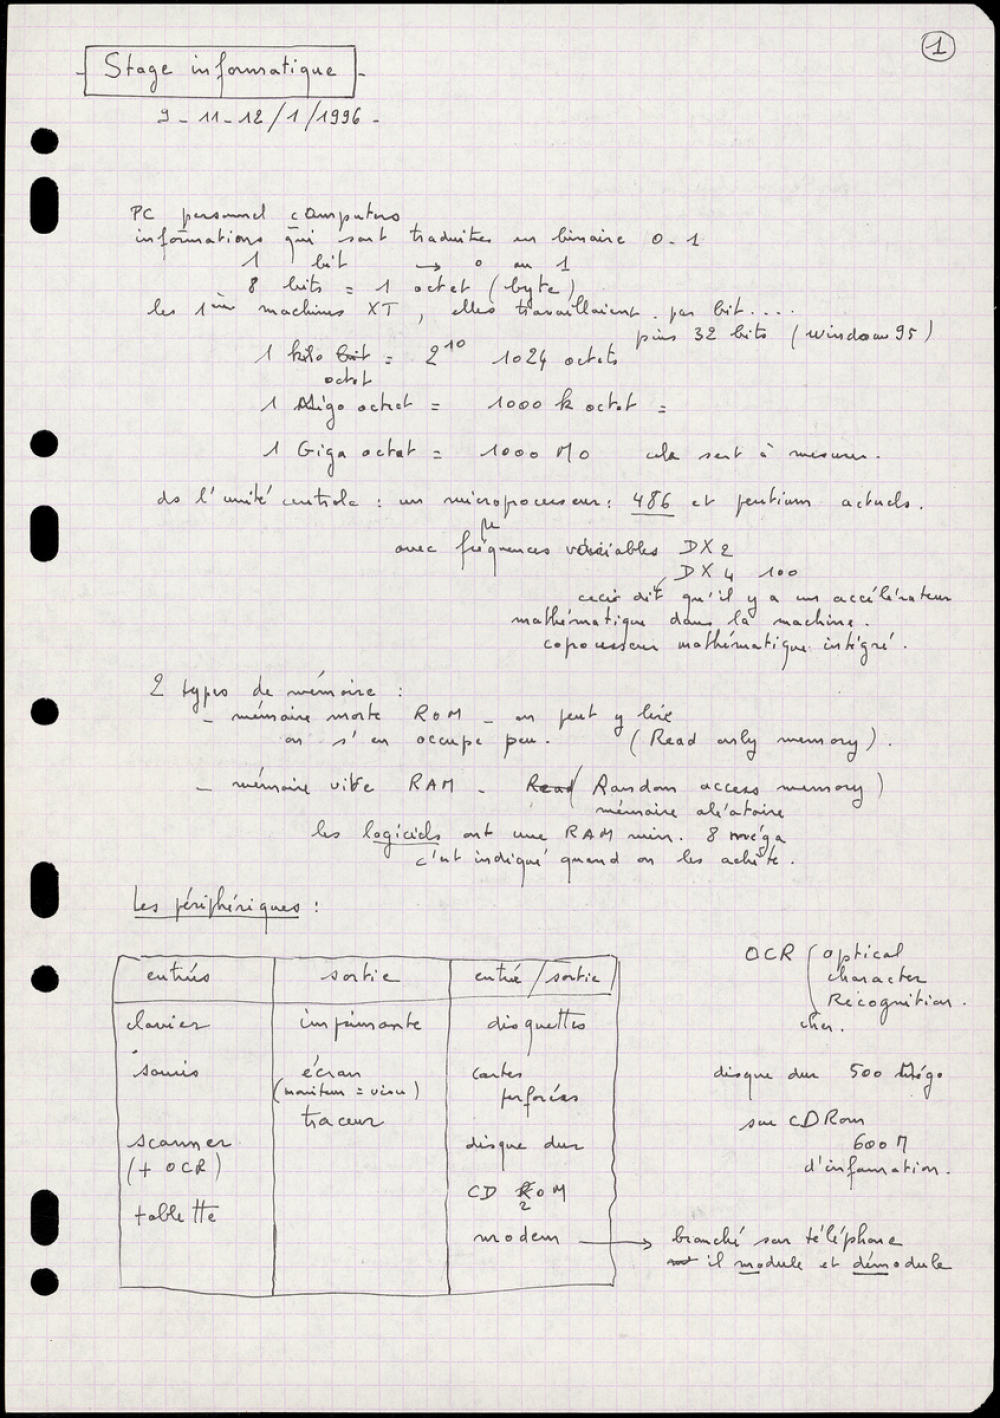 1
Stage informatique
9 - 11 - 12 / 1 / 1996 -
PC personnel computers
informations qui sont traduites en binaire 0 - 1
1 bit → 0 ou 1
8 bits = 1 octet (byte)
les 1ères machines XT, elles travaillaient par bit....
puis 32 bits (windows 95)
1 kilo bit = 2^10 1024 octets
octet
1 Mégo octet = 1000 k octet =
1 Giga octet = 1000 Mo cela sert à mesurer.
ds l'unité centrale : un microprocesseur : 486 et pentium actuels.
µ
avec fréquences variables DX2
DX4 100
ceci dit qu'il y a un accélérateur
mathématique dans la machine.
coprocesseur mathématique intégré.
2 types de mémoire :
- mémoire morte ROM - on peut y lire
on s'en occupe peu. (Read only memory).
- mémoire vive RAM - Read (Random access memory)
mémoire aléatoire
les logiciels ont une RAM min. 8 méga
c'est indiqué quand on les achète.
Les périphériques :
entrées sortie entrée/sortie
clavier imprimante disquettes
souris écran cartes
(moniteur = visu) perforées
traceur
scanner disque dur
(+ OCR)
CD ROM
2
tablette
modem → branché sur téléphone
il module et démodule
OCR (optical
character
Recognition.
cher.
disque dur 500 Mégo
sur CD Rom
600 M
d'information.